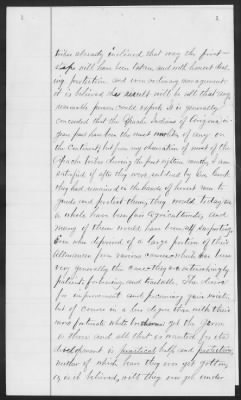 2
2
tribes already inclined that way the first
steps will have been taken and with honest deal
ing protection and even ordinary management
it is believed the result will be all that any
reasonable person could expect. It is generally
conceded that the Apache Indians of Arizona in
years past have been the most of any on
the Continent, but from my observation of most of the
Apache tribes during the past eighteen months, I am
satisfied if after they were subdued by Gen Crook
they had remained in the hands of honest men to
guide and protect them, they would today as
a whole have been fair agriculturists, and
many of them would have been self supporting.
Even when deprived of a large portion of their
allowances from various causes which has been
very generally the case they are astonishingly
patient, forbearing and tractable. The desire
for improvement and pecuniary gain exists,
but of course in a less degree than with their
more fortunate white brethren yet the germ
is there and all that is wanted for its
development is practical help and protection,
neither of which have they ever yet gotten,
or is it believed, will they ever get under